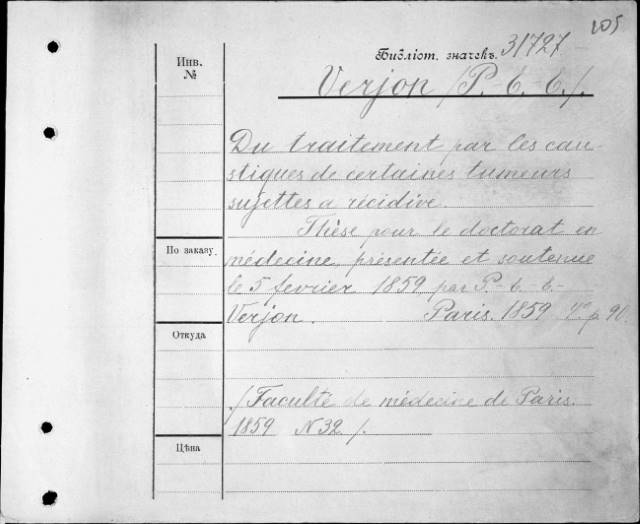 105
Инв.
№
Библіот. значекъ. 31727
Verjon /P.-E.-E./.
Du traitement par les cau-
stiques de certaines tumeurs
sujettes a récidive.
Thèse pour le doctorat en
По заказу.
médecine, présentée et soutenue
le 5 fevrier 1859 par P.-E.-E.-
Verjon. Paris. 1859 4º p. 90.
Откуда
/Faculté de médecine de Paris.
1859 N 32 /.
Цѣна